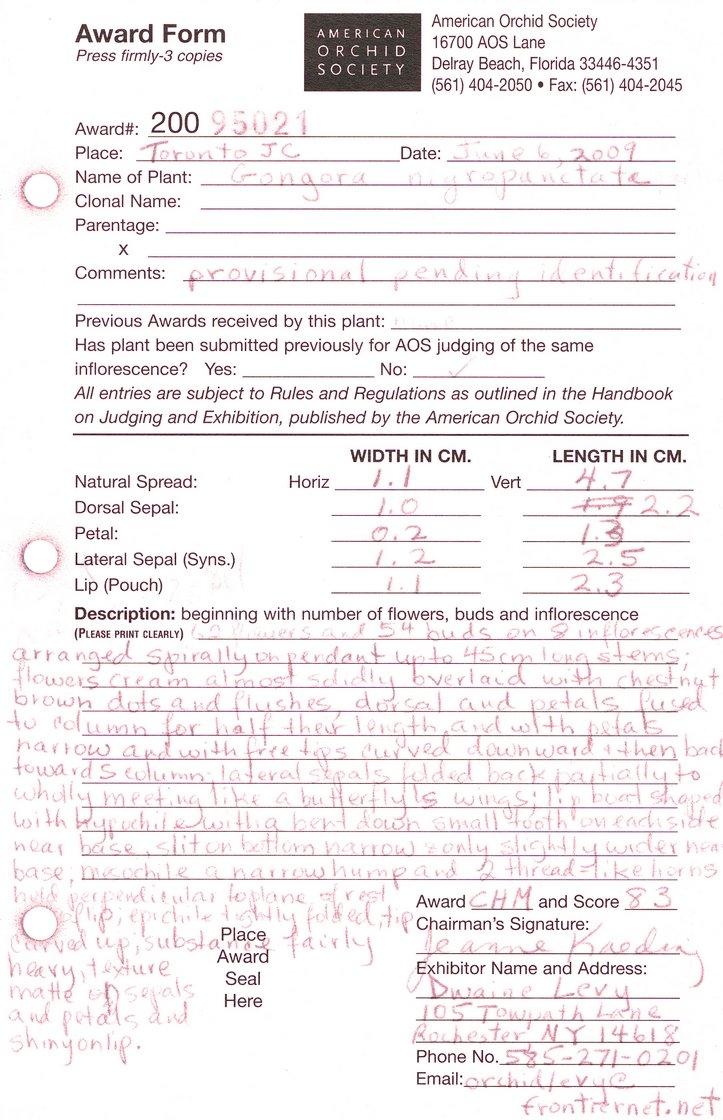 Award Form
Press firmly-3 copies
AMERICAN
ORCHID
SOCIETY
American Orchid Society
16700 AOS Lane
Delray Beach, Florida 33446-4351
(561) 404-2050 • Fax: (561) 404-2045
Award#: 200 95021
Place: Toronto JC Date: June 6, 2009
Name of Plant: Gongora nigropunctata
Clonal Name:
Parentage:
x
Comments: provisional pending identification
Previous Awards received by this plant: none
Has plant been submitted previously for AOS judging of the same
inflorescence? Yes: No: ✓
All entries are subject to Rules and Regulations as outlined in the Handbook
on Judging and Exhibition, published by the American Orchid Society.
WIDTH IN CM. LENGTH IN CM.
Natural Spread: Horiz 1.1 Vert 4.7
Dorsal Sepal: 1.0 1.9 2.2
Petal: 0.2 1.3
Lateral Sepal (Syns.) 1.2 2.5
Lip (Pouch) 1.1 2.3
Description: beginning with number of flowers, buds and inflorescence
(PLEASE PRINT CLEARLY) 62 flowers and 54 buds on 8 inflorescences
arranged spirally on pendant up to 45cm long stems;
flowers cream almost solidly overlaid with chestnut
brown dots and flushes, dorsal and petals fused
to column for half their length, and with petals
narrow and with free tips curved downward + then back
towards column; lateral sepals folded back partially to
wholly meeting like a butterfly's wings; lip boat shaped
with hypochile with a bent down small tooth on each side
near base, slit on bottom narrow + only slightly wider near
base, mesochile a narrow hump and 2 thread-like horns
held perpendicular to plane of rest
of lip; epichile tightly folded, tip
curved up; substance fairly
heavy, texture
matte on sepals
and petals and
shiny on lip.
Place
Award
Seal
Here
Award CHM and Score 83
Chairman's Signature:
Jeanne Kaeding
Exhibitor Name and Address:
Dwaine Levy
105 Towpath Lane
Rochester, NY 14618
Phone No. 585-271-0201
Email: orchidlevy@
frontiernet.net